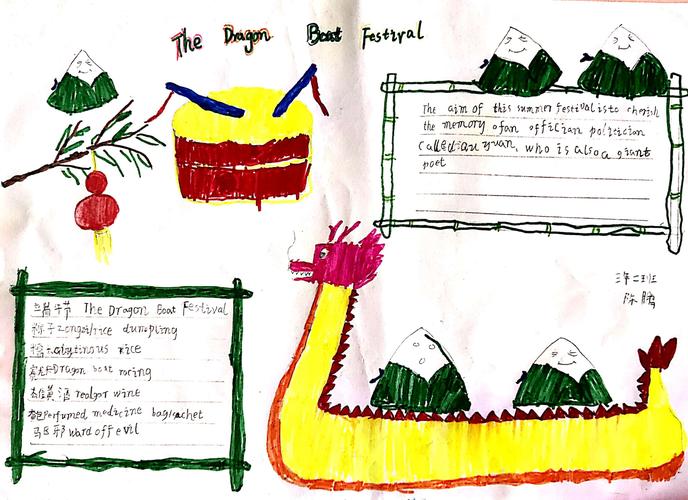 The Dragon Boat Festival
The aim of this summer festival is to cherish
the memory of an offician politician
Called yuan, who is also a giant
poet
三年二班
陈鹏
端午节 The Dragon Boat Festival
粽子 zongzi/rice dumpling
rice
Dragon boat racing
雄黄酒 realgar wine
perfumed medicine bag/sachet
ward off evil